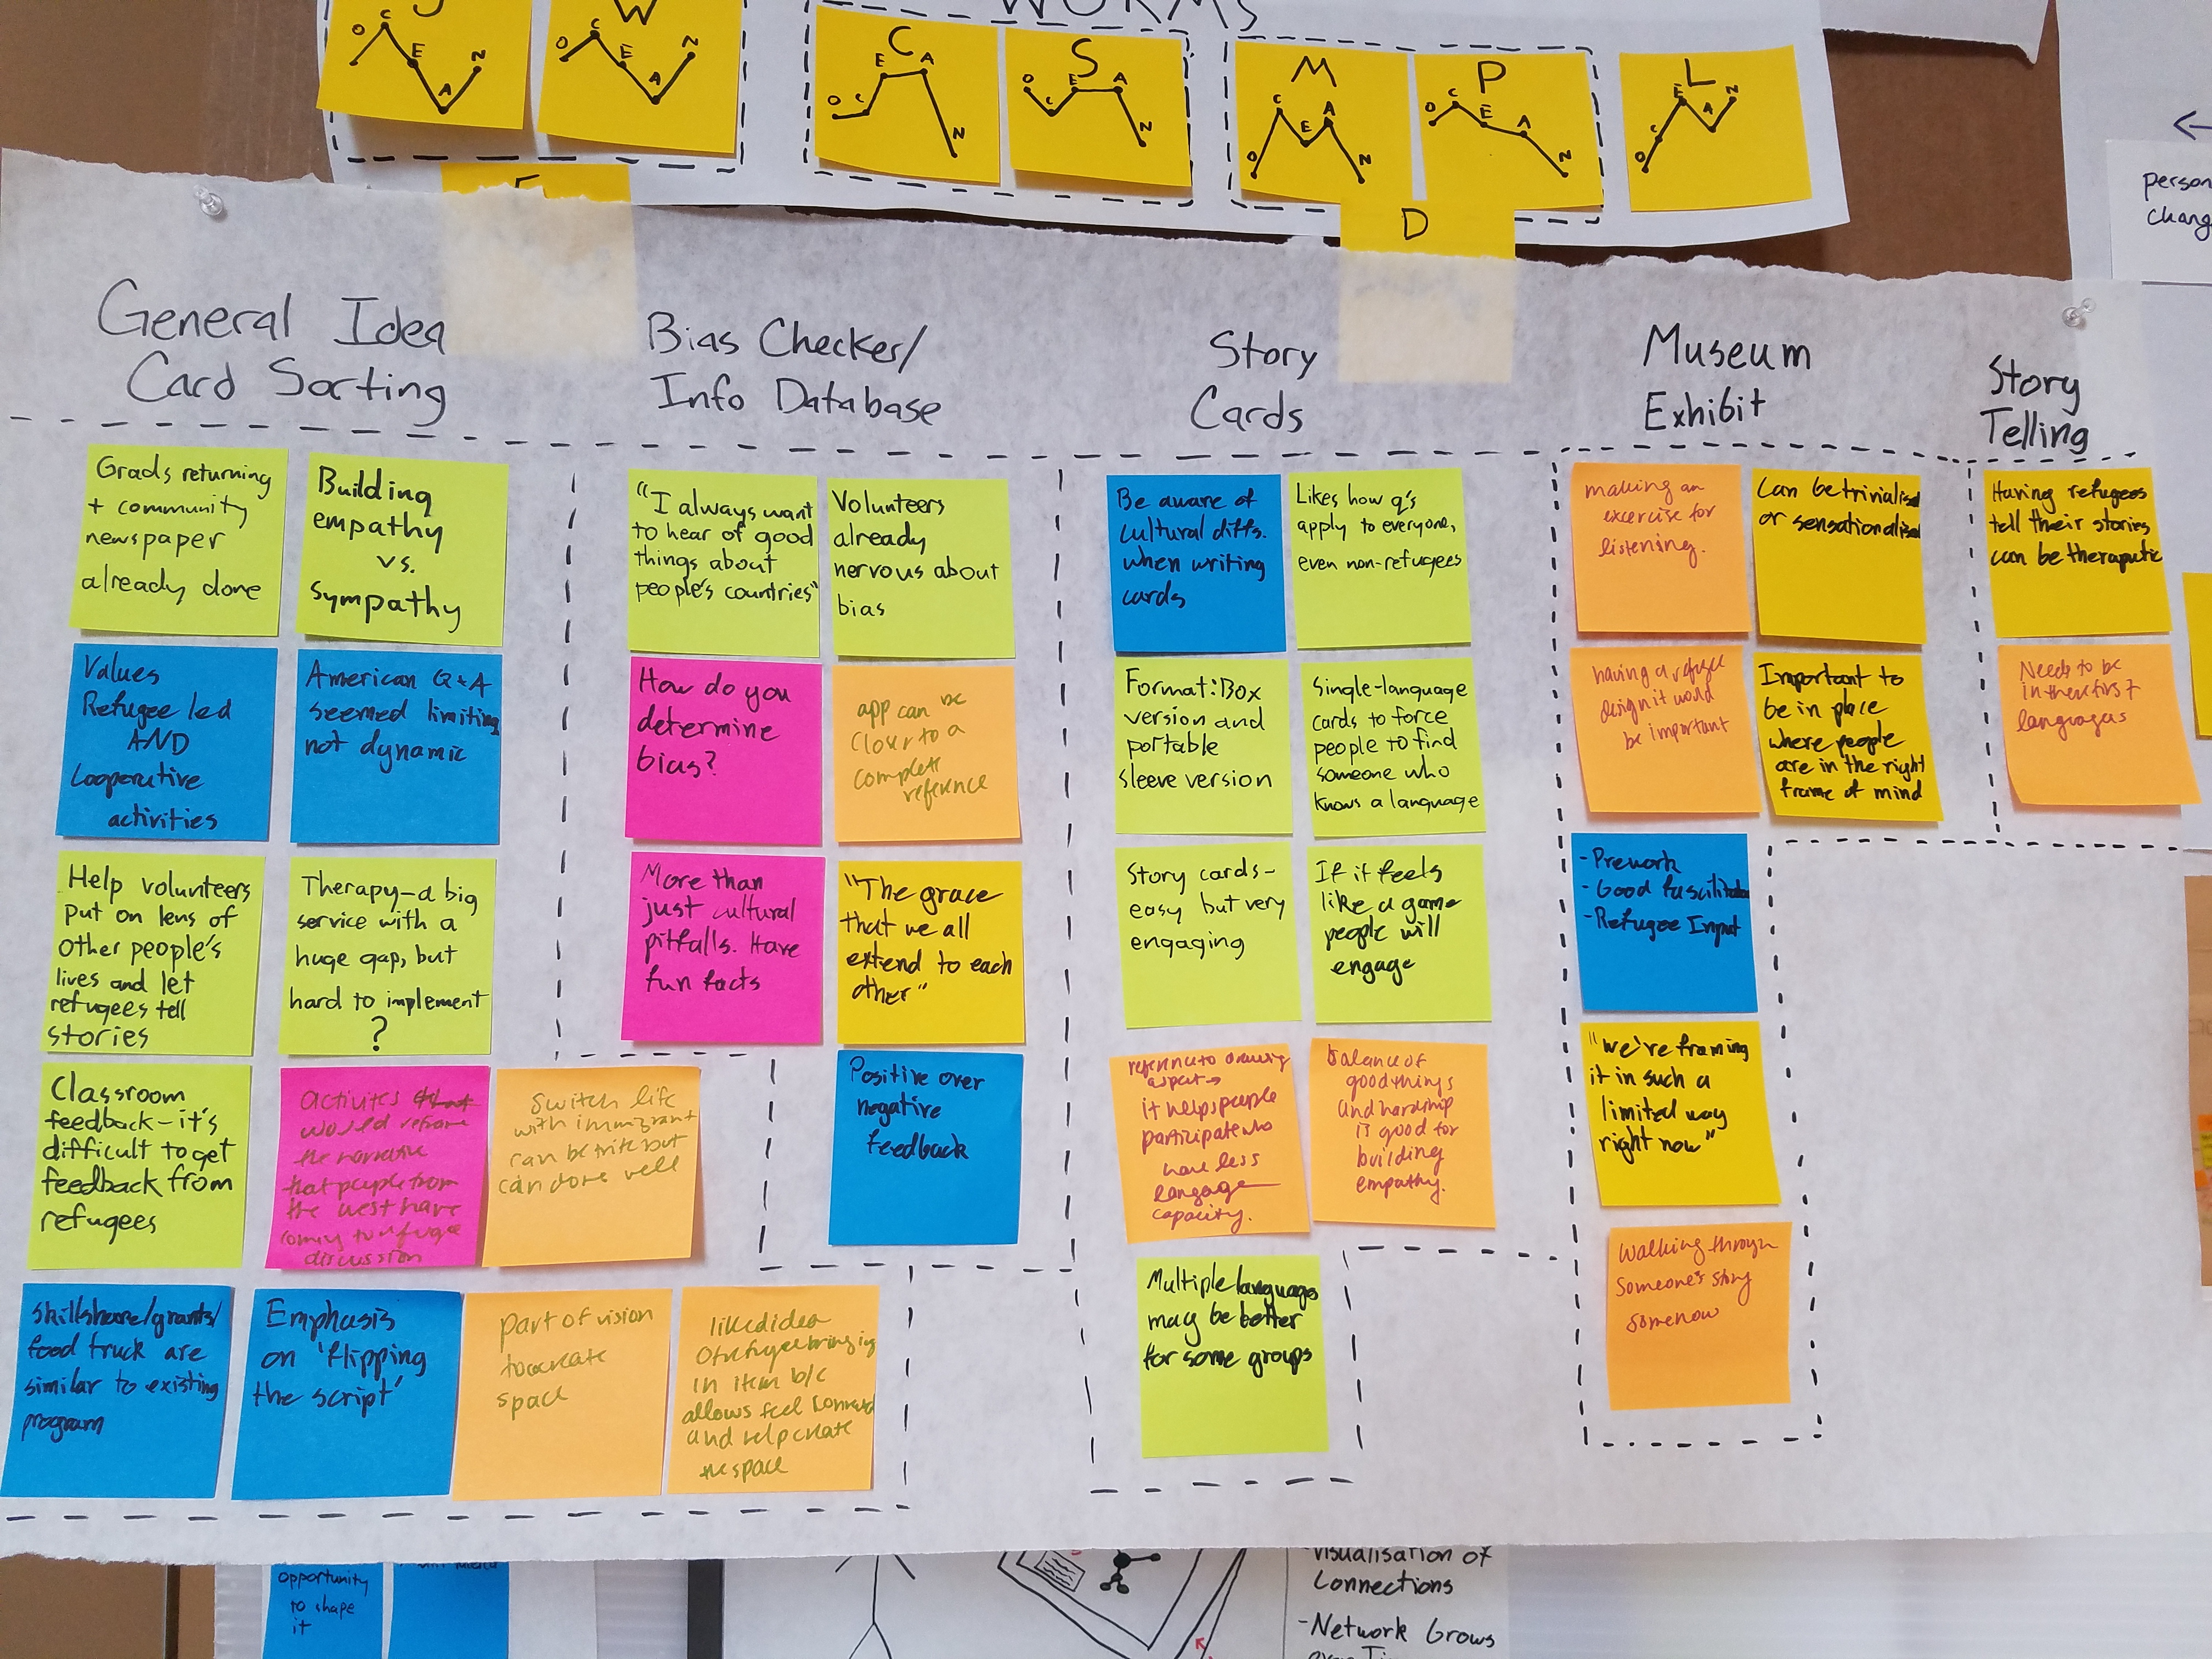 WORMS
J
O
C
E
A
N
W
O
C
E
A
N
C
O
C
E
A
N
S
O
C
E
A
N
M
O
C
E
A
N
P
O
C
E
A
N
L
O
C
E
A
N
D
←
person
chang
General Idea
Card Sorting
Grads returning
+ community
newspaper
already done
Building
empathy
vs.
Sympathy
Values
Refugee led
AND
Cooperative
activities
American Q+A
seemed limiting
not dynamic
Help volunteers
put on lens of
other people's
lives and let
refugees tell
stories
Therapy-a big
service with a
huge gap, but
hard to implement
?
Classroom
feedback-it's
difficult to get
feedback from
refugees
activites
would reframe
the narrative
that people from
the west have
coming to refugee
discussion
Switch life
with immigrant
can be trite but
can done well
Skillshare/grants/
food truck are
similar to existing
program
Emphasis
on 'flipping
the script'
part of vision
to create
space
liked idea
of refugee bringing
in item b/c
allows feel
and help create
the space
Bias Checker/
Info Database
"I always want
to hear of good
things about
people's countries"
Volunteers
already
nervous about
bias
How do you
determine
bias?
app can be
closer to a
complete
reference
More than
just cultural
pitfalls. Have
fun facts
"The grace
that we all
extend to each
other"
Positive over
negative
feedback
Story
Cards
Be aware of
cultural diffs.
when writing
cards
Likes how q's
apply to everyone,
even non-refugees
Format: Box
version and
portable
sleeve version
Single-language
cards to force
people to find
someone who
knows a language
Story cards-
easy but very
engaging
If it feels
like a game
people will
engage
reference to drawing
aspect →
it helps people
participate who
have less
langage
capacity.
balance of
good things
and hardship
is good for
building
empathy.
Multiple languages
may be better
for some groups
Museum
Exhibit
making an
excercise for
listening.
Can be trivialised
or sensationalised
having a refugee
design it would
be important
Important to
be in place
where people
are in the right
frame of mind
-Prework
-Good fascilitator
-Refugee Input
"We're framing
it in such a
limited way
right now"
Walking through
someone's story
somehow
Story
Telling
Having refugees
tell their stories
can be theraputic
Needs to be
in their first
languages
opportunity
to shape
it
Visualisation of
Connections
-Network Grows